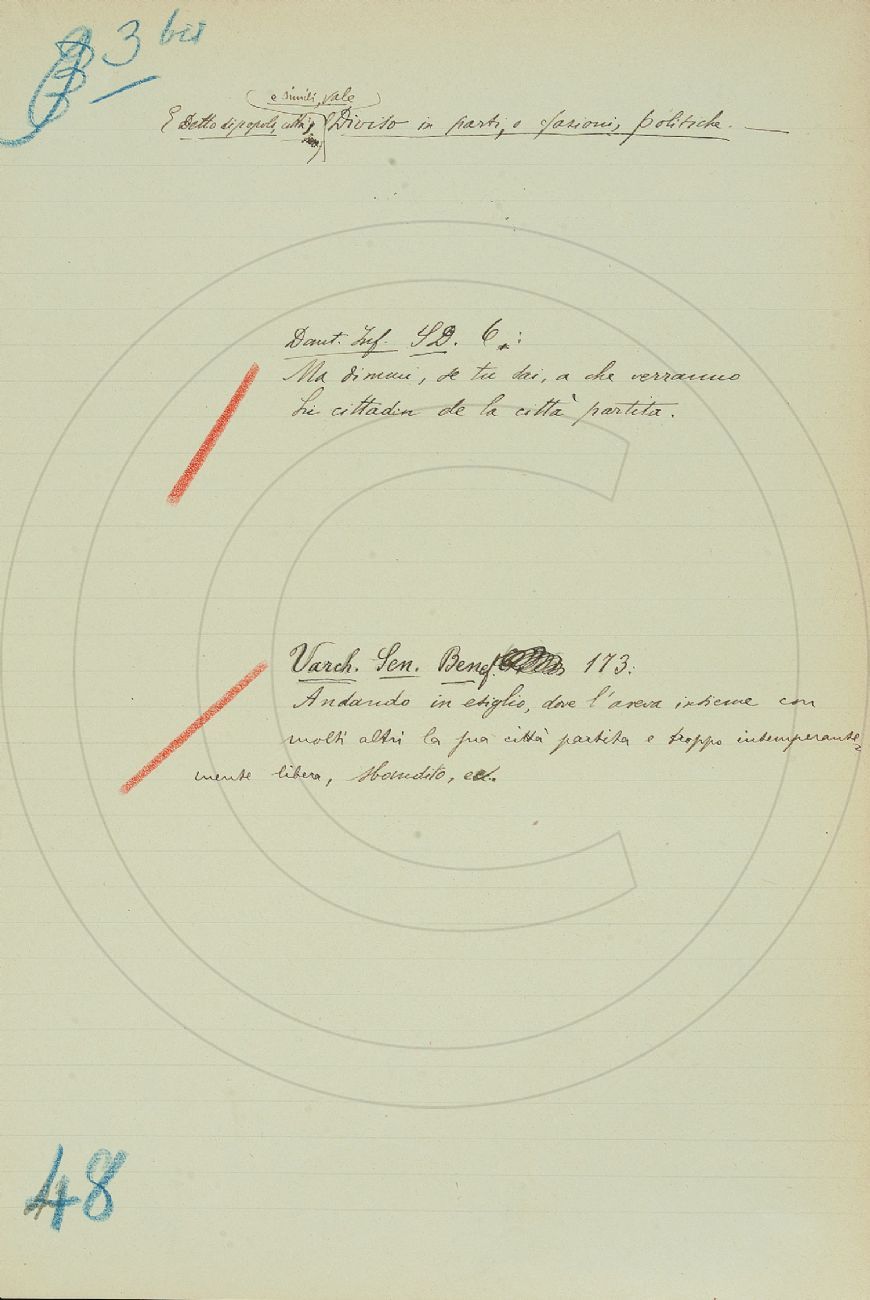 3 bis
e simili, vale
E Detto di popolo, città, Diviso in parti, o fazioni, politiche. —
Dant. Inf. SD. 6.:
Ma dimmi, se tu sai, a che verranno
Li cittadin de la città partita.
Varch. Sen. Benef. 173:
Andando in esiglio, dove l'aveva insieme con
molti altri la sua città partita e troppo intemperante-
mente libera, sbandito, ec.
48